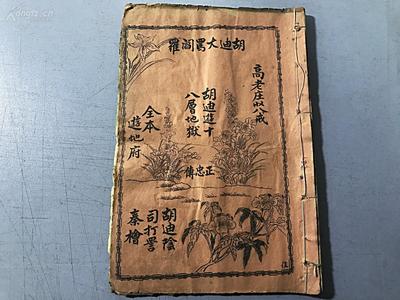 胡迪大罵阎羅
高老庄收八戒
胡迪遊十
八層地獄
全本
遊地府
正忠傳
胡迪陰
司打罵
秦檜